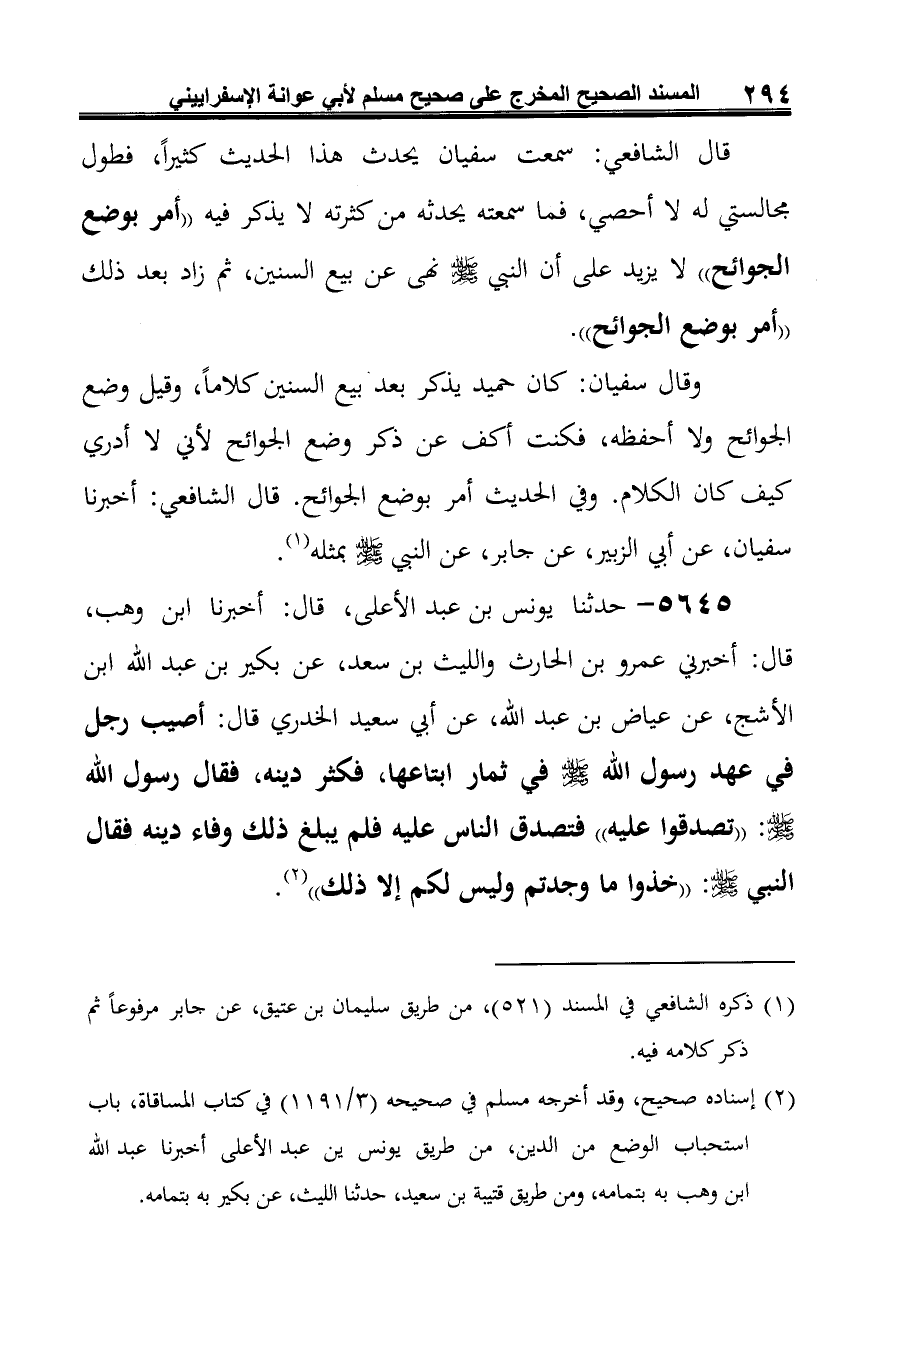 ٢٩٤ المسند الصحيح المخرج على صحيح مسلم لأبي عوانة الإسفراييني
قال الشافعي: سمعت سفيان يحدث هذا الحديث كثيراً، فطول
مجالستي له لا أحصي، فما سمعته يحدثه من كثرته لا يذكر فيه ((أمر بوضع
الجوائح)) لا يزيد على أن النبي ﷺ نهى عن بيع السنين، ثم زاد بعد ذلك
((أمر بوضع الجوائح)).
وقال سفيان: كان حميد يذكر بعد بيع السنين كلاماً، وقيل وضع
الجوائح ولا أحفظه، فكنت أكف عن ذكر وضع الجوائح لأني لا أدري
كيف كان الكلام. وفي الحديث أمر بوضع الجوائح. قال الشافعي: أخبرنا
سفيان، عن أبي الزبير، عن جابر، عن النبي ﷺ بمثله(١).
٥٦٤٥- حدثنا يونس بن عبد الأعلى، قال: أخبرنا ابن وهب،
قال: أخبرني عمرو بن الحارث والليث بن سعد، عن بكير بن عبد الله ابن
الأشج، عن عياض بن عبد الله، عن أبي سعيد الخدري قال: أصيب رجل
في عهد رسول الله ﷺ في ثمار ابتاعها، فكثر دينه، فقال رسول الله
ﷺ: ((تصدقوا عليه)) فتصدق الناس عليه فلم يبلغ ذلك وفاء دينه فقال
النبي ﷺ: ((خذوا ما وجدتم وليس لكم إلا ذلك))(٢).
(١) ذكره الشافعي في المسند (٥٢١)، من طريق سليمان بن عتيق، عن جابر مرفوعاً ثم
ذكر كلامه فيه.
(٢) إسناده صحيح، وقد أخرجه مسلم في صحيحه (١١٩١/٣) في كتاب المساقاة، باب
استحباب الوضع من الدين، من طريق يونس ين عبد الأعلى أخبرنا عبد الله
ابن وهب به بتمامه، ومن طريق قتيبة بن سعيد، حدثنا الليث، عن بكير به بتمامه.